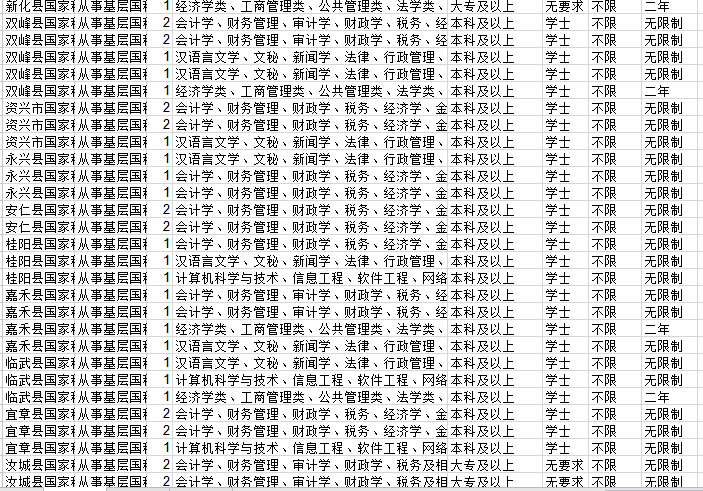 新化县国家 从事基层国 1 经济学类、工商管理类、公共管理类、法学类、 大专及以上 无要求 不限 二年
双峰县国家 从事基层国 2 会计学、财务管理、审计学、财政学、税务、经 本科及以上 学士 不限 无限制
双峰县国家 从事基层国 2 会计学、财务管理、审计学、财政学、税务、经 本科及以上 学士 不限 无限制
双峰县国家 从事基层国 1 汉语言文学、文秘、新闻学、法律、行政管理、 本科及以上 学士 不限 无限制
双峰县国家 从事基层国 1 汉语言文学、文秘、新闻学、法律、行政管理、 本科及以上 学士 不限 无限制
双峰县国家 从事基层国 1 经济学类、工商管理类、公共管理类、法学类、 本科及以上 学士 不限 二年
资兴市国家 从事基层国 2 会计学、财务管理、财政学、税务、经济学、金 本科及以上 学士 不限 无限制
资兴市国家 从事基层国 2 会计学、财务管理、财政学、税务、经济学、金 本科及以上 学士 不限 无限制
资兴市国家 从事基层国 1 汉语言文学、文秘、新闻学、法律、行政管理、 本科及以上 学士 不限 无限制
永兴县国家 从事基层国 1 汉语言文学、文秘、新闻学、法律、行政管理、 本科及以上 学士 不限 无限制
永兴县国家 从事基层国 1 会计学、财务管理、财政学、税务、经济学、金 本科及以上 学士 不限 无限制
永兴县国家 从事基层国 1 会计学、财务管理、财政学、税务、经济学、金 本科及以上 学士 不限 无限制
安仁县国家 从事基层国 2 会计学、财务管理、财政学、税务、经济学、金 本科及以上 学士 不限 无限制
安仁县国家 从事基层国 2 会计学、财务管理、财政学、税务、经济学、金 本科及以上 学士 不限 无限制
桂阳县国家 从事基层国 1 会计学、财务管理、财政学、税务、经济学、金 本科及以上 学士 不限 无限制
桂阳县国家 从事基层国 1 汉语言文学、文秘、新闻学、法律、行政管理、 本科及以上 学士 不限 无限制
桂阳县国家 从事基层国 1 计算机科学与技术、信息工程、软件工程、网络 本科及以上 学士 不限 无限制
嘉禾县国家 从事基层国 1 会计学、财务管理、审计学、财政学、税务、经 本科及以上 学士 不限 无限制
嘉禾县国家 从事基层国 1 会计学、财务管理、审计学、财政学、税务、经 本科及以上 学士 不限 无限制
嘉禾县国家 从事基层国 1 经济学类、工商管理类、公共管理类、法学类、 本科及以上 学士 不限 二年
嘉禾县国家 从事基层国 1 汉语言文学、文秘、新闻学、法律、行政管理、 本科及以上 学士 不限 无限制
临武县国家 从事基层国 1 汉语言文学、文秘、新闻学、法律、行政管理、 本科及以上 学士 不限 无限制
临武县国家 从事基层国 1 计算机科学与技术、信息工程、软件工程、网络 本科及以上 学士 不限 无限制
临武县国家 从事基层国 1 经济学类、工商管理类、公共管理类、法学类、 本科及以上 学士 不限 二年
宜章县国家 从事基层国 2 会计学、财务管理、财政学、税务、经济学、金 本科及以上 学士 不限 无限制
宜章县国家 从事基层国 2 会计学、财务管理、财政学、税务、经济学、金 本科及以上 学士 不限 无限制
宜章县国家 从事基层国 1 计算机科学与技术、信息工程、软件工程、网络 本科及以上 学士 不限 无限制
汝城县国家 从事基层国 2 会计学、财务管理、审计学、财政学、税务及相 大专及以上 无要求 不限 无限制
汝城县国家 从事基层国 2 会计学、财务管理、审计学、财政学、税务及相 大专及以上 无要求 不限 无限制